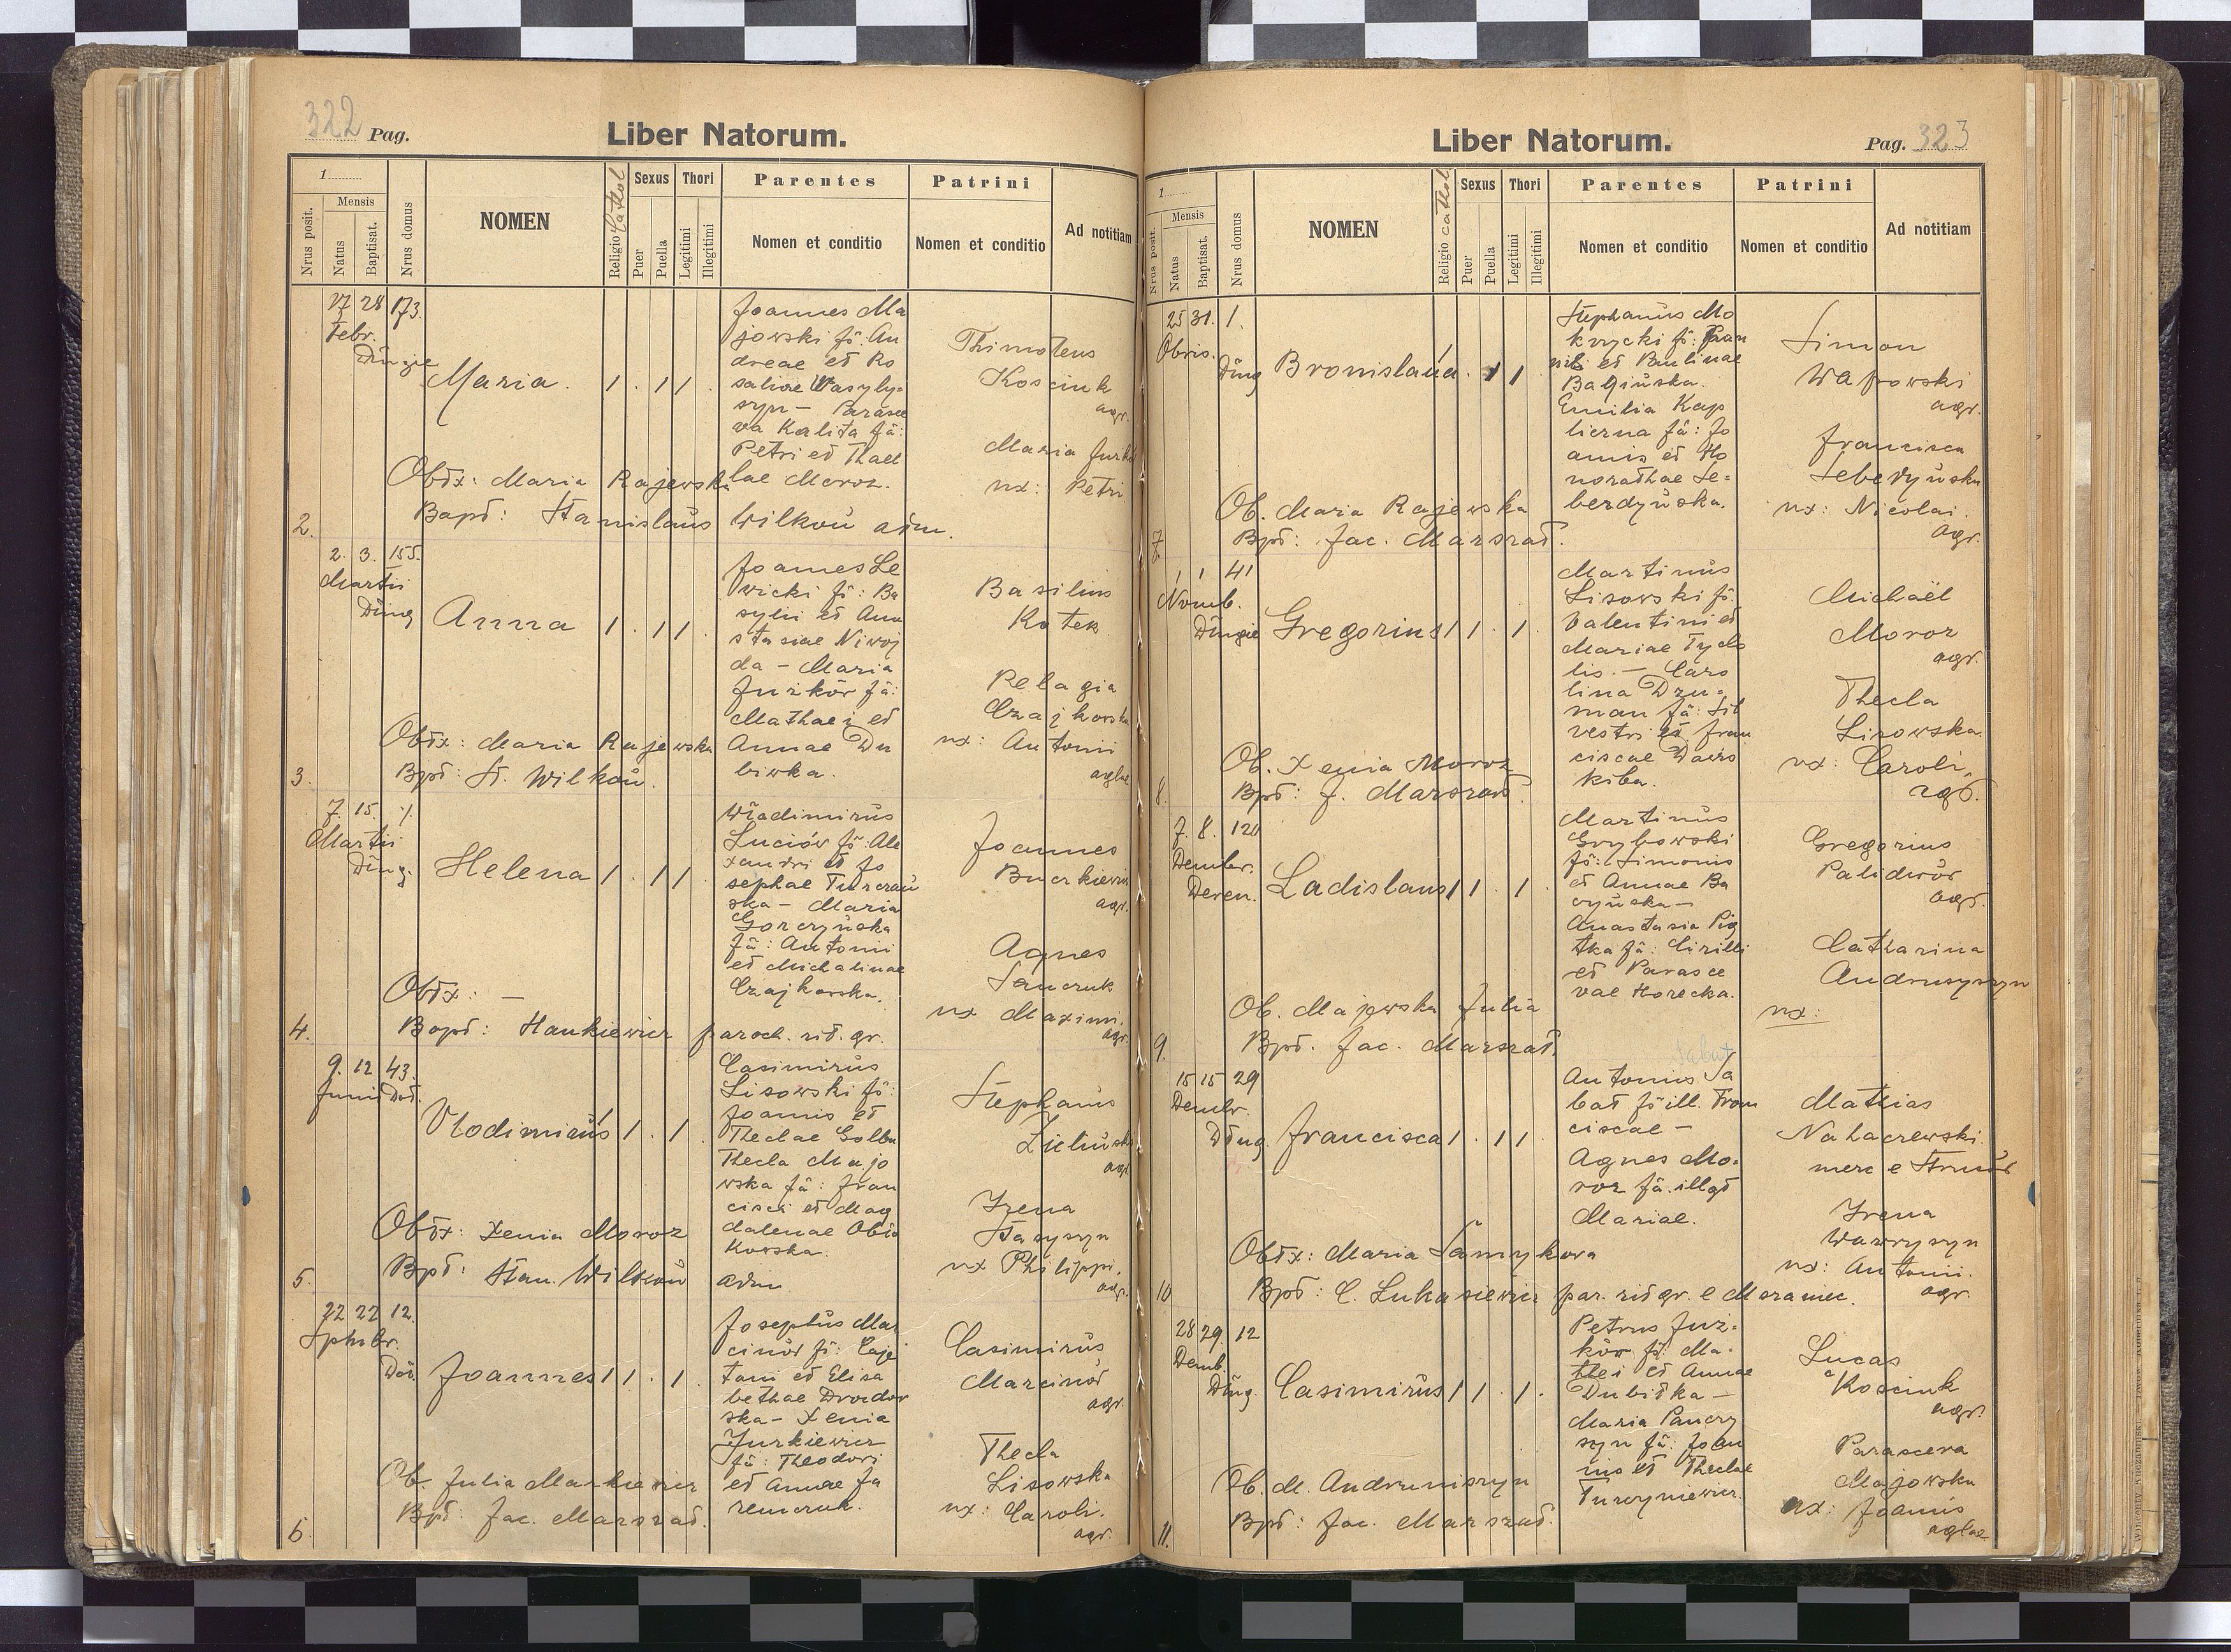 322 Pag.
Liber Natorum.
1
Nrus posit.
Mensis
Natus
Baptisat.
Nrus domus
NOMEN
Religio Cathol
Sexus
Puer
Puella
Thori
Legitimi
Illegitimi
Parentes
Nomen et conditio
Patrini
Nomen et conditio
Ad notitiam
17 28 173.
Febr.
Maria. 1 . 1 1
Joannes Ma
jowski fs: An
dreae et Ro
saliae Wasyly-
szyn - Parasce
va Kalita fa:
Petri et Thec
lae Moroz.
Thimoteus
Kosciuk
agr.
Maria
ux: Petri
Obstx: Maria Rajewska
2. Bapt: Stanislaus Wilkoń adm.
2. 3. 155.
Martii
Dźwg
Anna 1 . 1 1 .
Joannes Le
wicki fs: Ba
sylii et Ana
stasiae
da - Maria
Jurków fa:
Mathaei et
Annae Du
biwka.
Basilius
Kotek
Pelagia
Czajkowska
ux: Antonii
aglae
Obstx: Maria Rajewska
3. Bpt: St. Wilkoń.
7. 15. 1.
Martii
Helena 1 . 1 1 .
Wladimirus
Luciów fs: Ale
xandri et Jo
sephae Turczań
ska - Maria
Gorczyńska
fa: Antonii
et Michalinae
Czajkowska.
Joannes
Buczkiewicz
agr.
Agnes
Sauczuk
ux Maximi.
agr.
Obstx: -
4. Bapt: Hankiewicz paroch. rit. gr.
9. 12 43.
Junii
Vlodimirus 1 . 1 .
Casimirus
Lisowski fs:
Joannis et
Theclae Golba
Thecla Majo
wska fa: Fran
cisci et Mag
dalenae
kowska.
Stephanus
agr
Irena
Stasyszyn
ux Philippi,
agr.
Obstx: Xenia Moroz
5. Bpt: Stan. Wilkoń adm
22 22 12.
Sptmbr.
Joannes 1 1 . 1 .
Josephus Mar
cinów fs: Caje
tani et Elisa
bethae Drozdow
ska - Xenia
Jurkiewicz
fa: Theodori
et Annae Ja
remczuk.
Casimirus
Marcinów
agr.
Thecla
Lisowska
ux: Caroli.
agr.
Ob. Julia Markiewicz
6. Bpt: Jac. Marszał.
Liber Natorum.
Pag. 323
1
Nrus posit.
Mensis
Natus
Baptisat.
Nrus domus
NOMEN
Religio cathol
Sexus
Puer
Puella
Thori
Legitimi
Illegitimi
Parentes
Nomen et conditio
Patrini
Nomen et conditio
Ad notitiam
25 31. 1.
Obris.
Bronislaua . 1 1 .
Stephanus Mo
krzycki fs: Joan
nis et Paulinae
Bagińska.
Emilia Kap
lierna fa: Jo
annis et Ho
norathae Se-
berdyńska.
Simon
agr.
Francisca
ux: Nicolai.
agr.
Ob. Maria Rajewska
7. Bpt: Jac. Marszał.
1 1 41
Novmb.
Gregorius 1 1 . 1 .
Martinus
Lisowski fs.
Valentini et
Mariae
lis. - Caro
lina Dzu-
man fa: Sil
vestri et Fran
ciscae
kiba.
Michaël
Moroz
agr.
Thecla
Lisowska
ux: Caroli,
agr.
Ob. Xenia Moroz
8. Bpt: J. Marszał.
7. 8. 120
Dembr.
Deren.
Ladislaus 1 1 . 1 .
Martinus
Grzybowski
fs: Simonis
et Annae Ba
czyńska -
Anastasia Pią
tka fa: Cirilli
et Parasce
vae Horecka.
Gregorius
Palidwór
agr.
Catharina
Andrusyszyn
ux:
Ob. Majewska Julia
9. Bpt. Jac. Marszał.
15 15 29
Dembr.
Francisca 1 . 1 1 .
Sabat
Antonius Sa
bat fs ill. Fran
ciscae -
Agnes Mo-
roz fa. illgt
Mariae.
Mathias
Nahaczewski.
merc e
Irena
Wawryszyn
ux: Antonii.
agr
Obstx: Maria Samykowa
10 Bpt: C. Lukasiewicz par. rit gr. e Mszaniec.
28 29. 12
Demb.
Casimirus 1 1 . 1 .
Petrus Jurz-
ków fs: Ma-
thei et Annae
Dubitka -
Maria Panczy
szyn fa: Joan
nis et Theclae
Turzyniewicz.
Lucas
Kosciuk
agr.
Parasceva
Magowska
ux: Joannis
aglae
Ob. M. Andruniszyn
11. Bpt: Jac. Marszał.